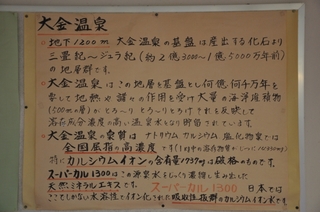 大金温泉
地下1200m 大金温泉の基盤は産出する化石より
三畳紀〜ジュラ紀(約2億3000〜1億5000万年前)
の地層群です。
大金温泉はこの地層を基盤とし何億、何千万年を
経て地熱や諸々の作用を受け大量の海洋堆積物
(600mの層)がとろ〜りとろ〜りとろけそれを反映して
溶存成分濃度の高い温泉水となり貯留されています。
大金温泉の泉質は ナトリウム カルシウム 塩化物泉では
全国屈指の高濃度です
特にカルシウムイオンの含有量7739mgは破格のものです。
スーパーカル1300はこの源泉水をじっくり濃縮し生み出した
天然ミネラルエキスです。 スーパーカル1300 日本では
ここでしかない水溶性でイオン化された吸収性抜群のカルシウムイオン水です